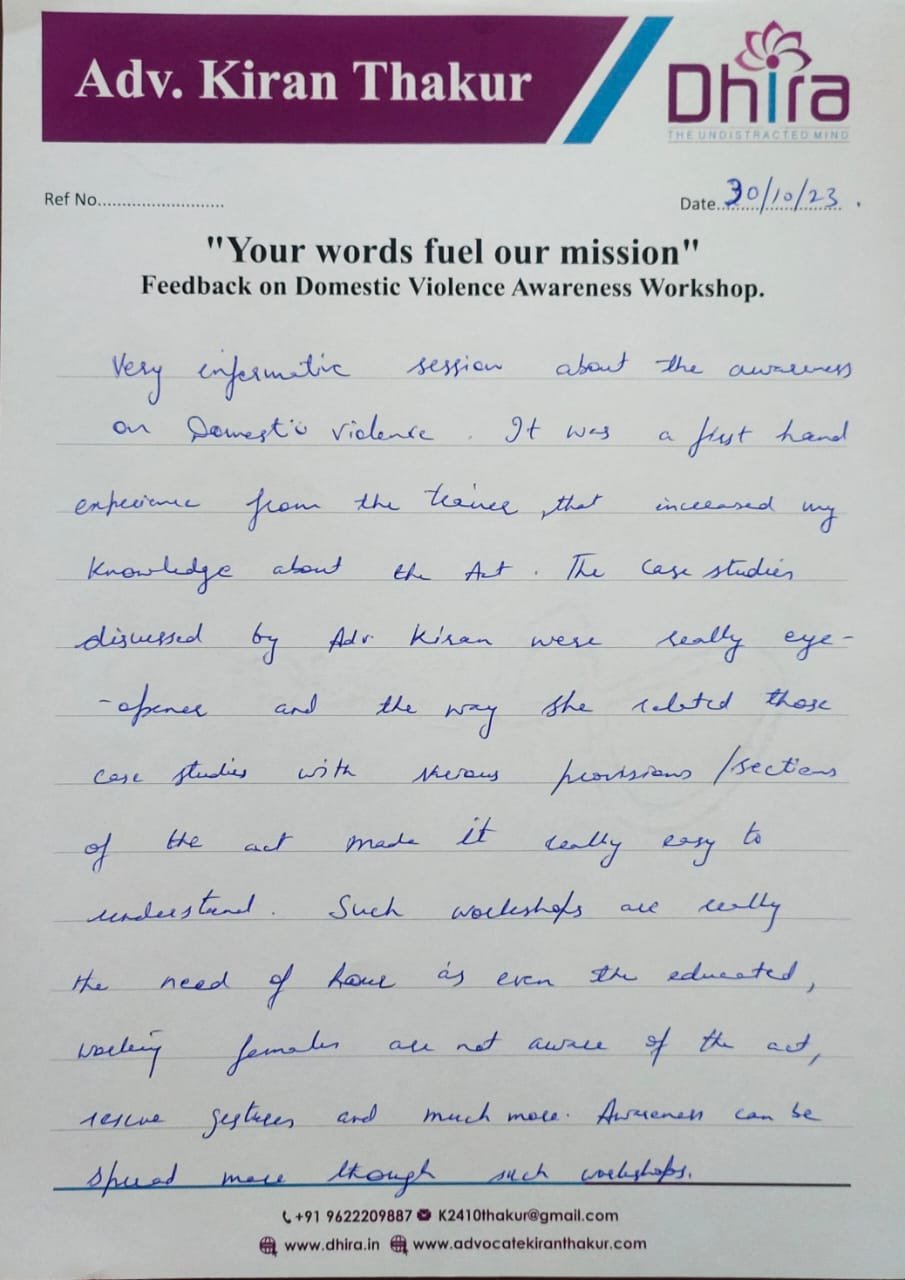 Adv. Kiran Thakur
Dhira
THE UNDISTRACTED MIND
Ref No..........................
Date 30/10/23.
"Your words fuel our mission"
Feedback on Domestic Violence Awareness Workshop.
Very informatic session about the awareness
on Domestic violence. It was a first hand
experience from the trainer, that increased my
knowledge about the Act. The case studies
discussed by Adv. Kiran were really eye-
-opener and the way she related those
case studies with various provisions/sections
of the act made it really easy to
understand. Such workshops are really
the need of hour as even the educated,
working females are not aware of the act,
rescue gestures and much more. Awareness can be
spread more though such workshops.
+91 9622209887 K2410thakur@gmail.com
www.dhira.in www.advocatekiranthakur.com